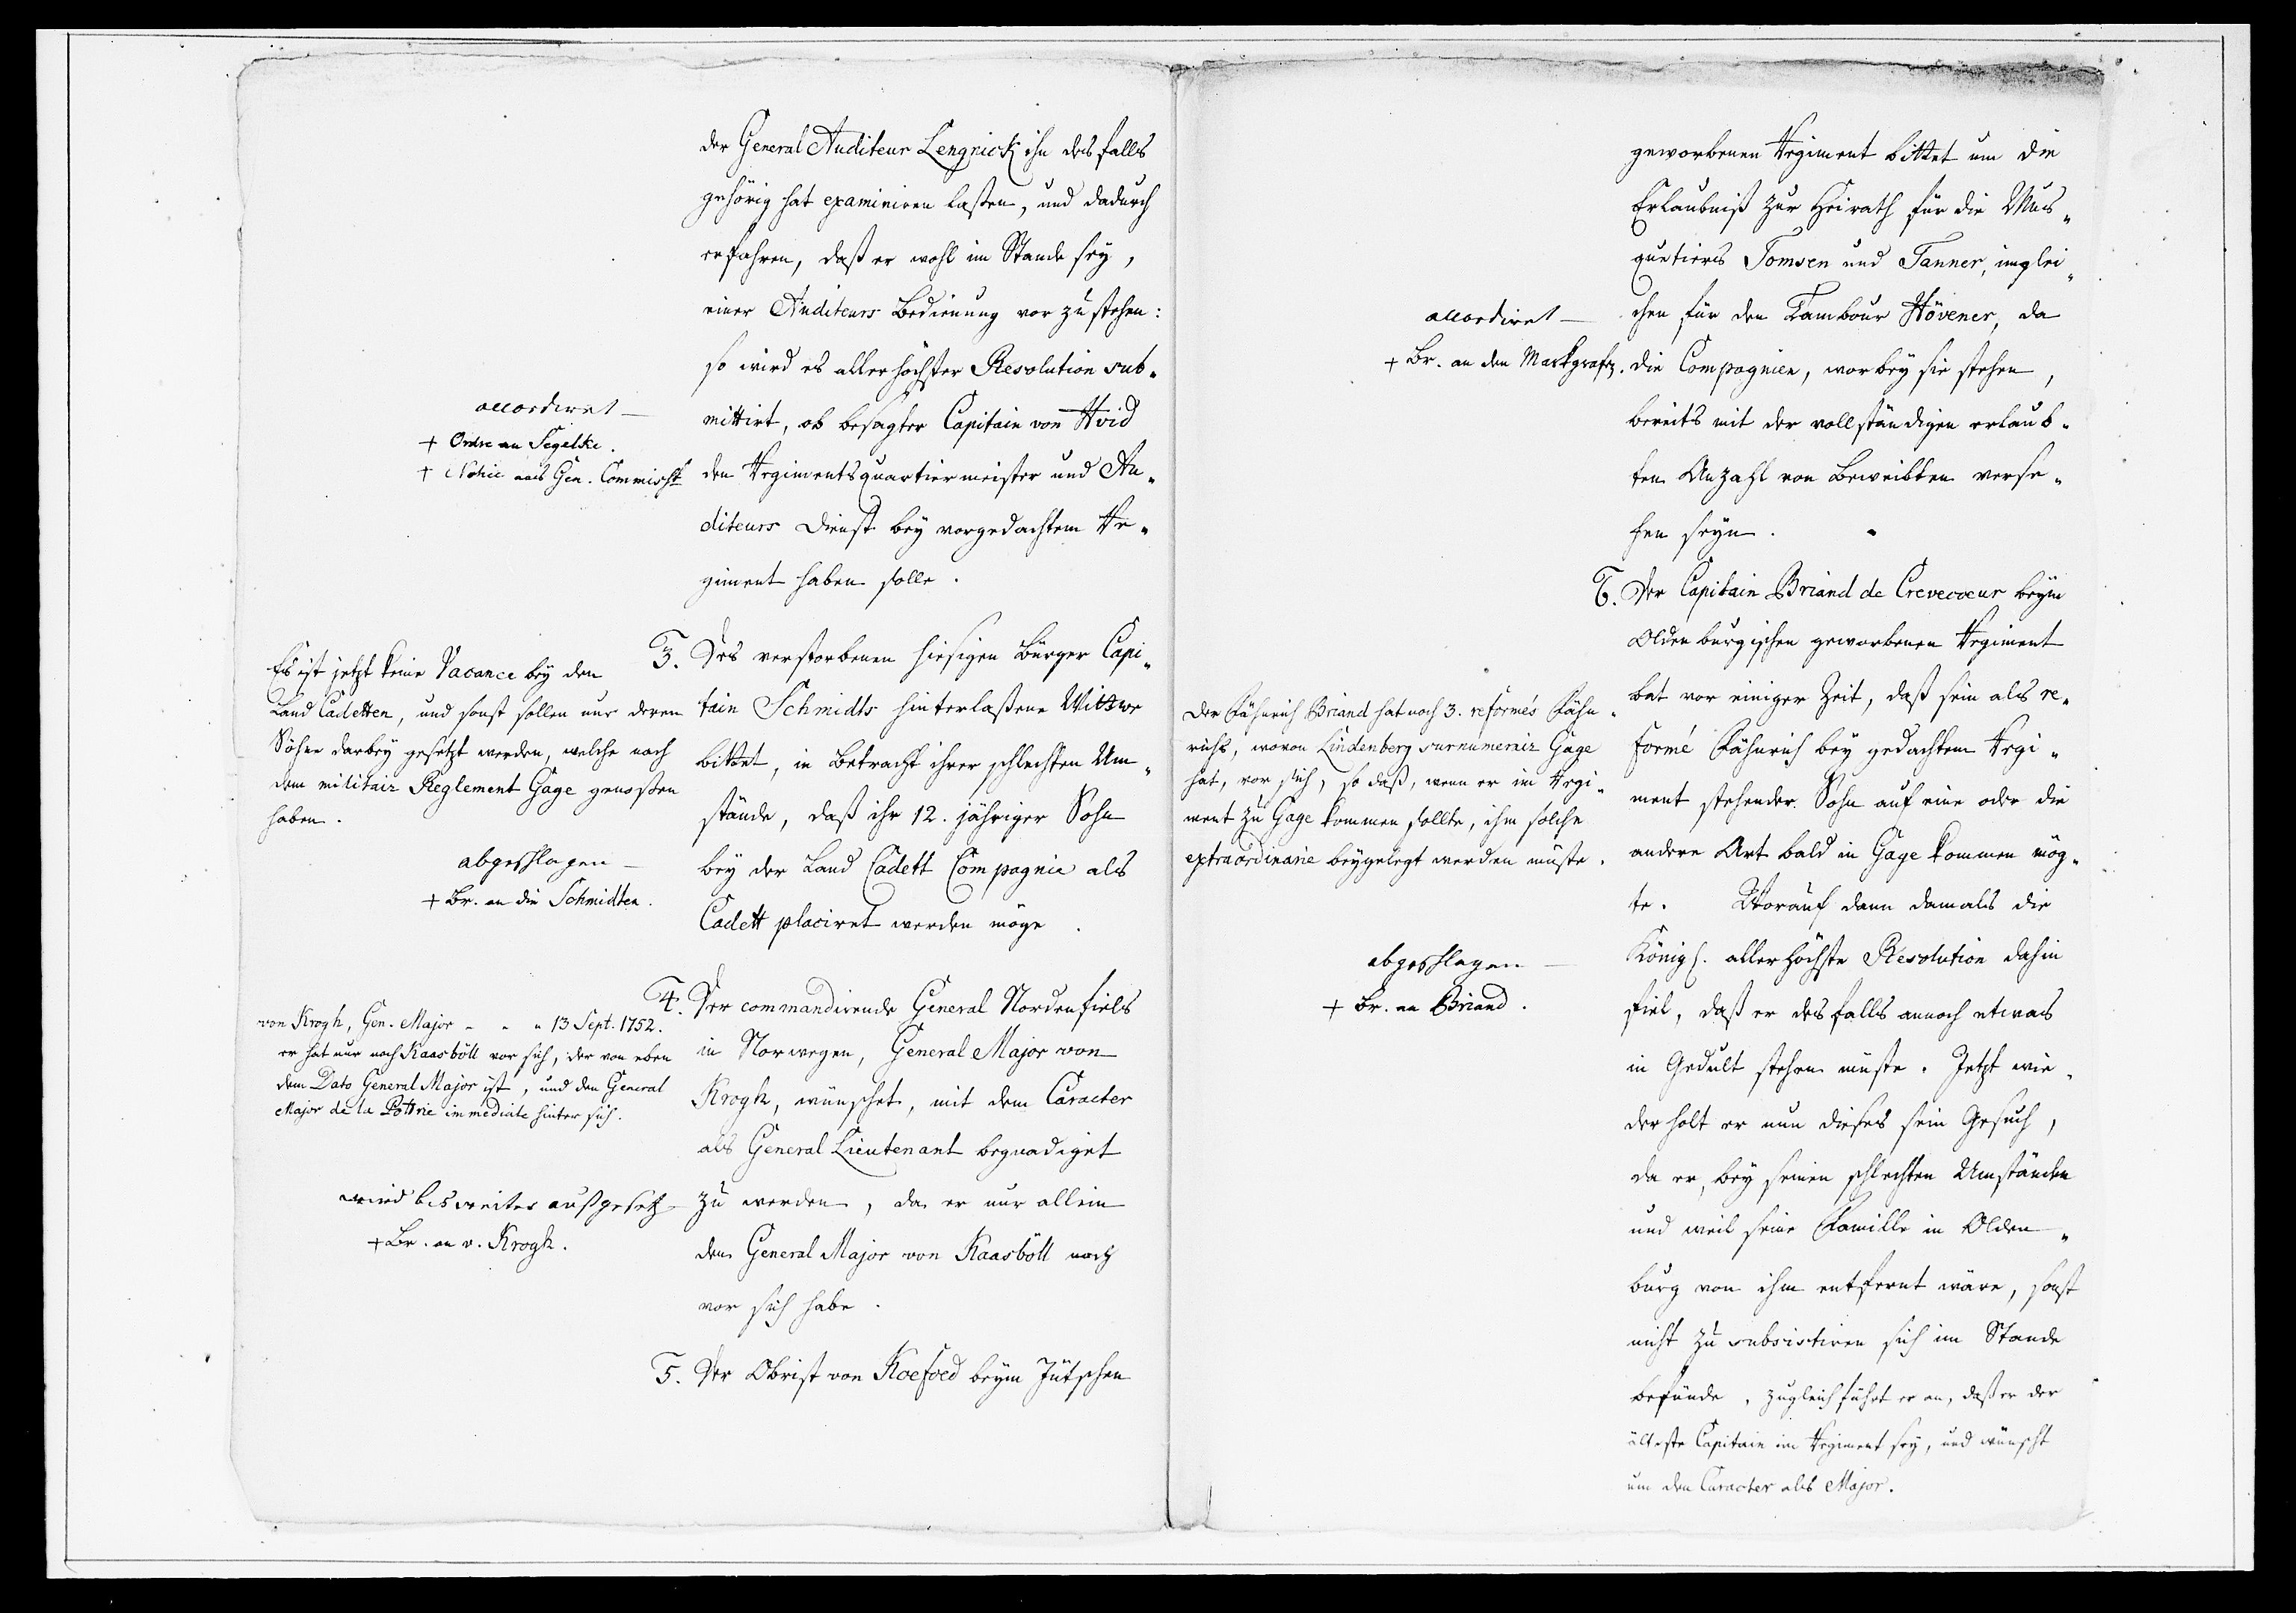 der General Auditeur Lengnick ihn desfalls
gehörig hat examiniren laßen, und dadurch
erfahren, daß er wohl im Stande sey,
einer Auditeurs Bedienung vorzustehen:
so wird es allerhöchster Resolution sub-
mittirt, ob besagter Capitain von Hvid
den Regimentsquartiermeister und Au-
diteurs Dienst bey vorgedachtem Re-
giment haben solle.
accordiret
+ Ordre an Segelke.
+ Notice ans Gen. Commiss.
3. Des verstorbenen hiesigen Bürger Capi-
tain Schmidts hinterlaßene Wittwe
bittet, in Betracht ihrer schlechten Um-
stände, daß ihr 12. jähriger Sohn
bey der Land Cadett Compagnie als
Cadett placiret werden möge.
Es ist jetzt keine Vacance bey den
Land Cadetten, und sonst sollen nur deren
Söhne darbey gesetzt werden, welche nach
dem militair Reglement Gage genoßen
haben.
abgeschlagen
+ Br. an die Schmidten.
4. Der commandirende General Nordenfiels
in Norwegen, General Major von
Krogh, wünschet, mit dem Caracter
als General Lieutenant begnadiget
zu werden, da er nur allein
den General Major von Kaasböll noch
vor sich habe.
von Krogh, Gen. Major - - - 13 Sept. 1752.
er hat nur noch Kaasböll vor sich, der von eben
dem Dato General Major ist, und den General
Major de la Pottrie immediate hinter sich.
wird bis weiter ausgesetzt
+ Br. an v. Krogh.
5. Der Obrist von Koefoed beym Jütschen
geworbenen Regiment bittet um die
Erlaubniß zur Heirath für die Mus-
quetiers Tomsen und Tanner, inglei-
chen für den Tambour Hövener, da
die Compagnien, worbey sie stehen,
bereits mit der vollständigen erlaub-
ten Anzahl von Beweibten verse-
hen seyn.
accordiret
+ Br. an den Markgrafen.
6. Der Capitain Briand de Crevecoeur beym
Oldenburgischen geworbenen Regiment
bat vor einiger Zeit, daß sein als re-
formé Fähnrich bey gedachtem Regi-
ment stehender Sohn auf eine oder die
andere Art bald in Gage kommen mög-
te. Worauf dann damals die
Königl. allerhöchste Resolution dahin
fiel, daß er desfalls annoch etwas
in Gedult stehen müste. Jetzt wie-
derholt er nun dieses sein Gesuch,
da er, bey seinen schlechten Umständen
und weil seine Famille in Olden-
burg von ihm entfernt wäre, sonst
nicht zu subsistiren sich im Stande
befünde. Zugleich führt er an, daß er der
älteste Capitain im Regiment sey, und wünscht
um den Caracter als Major.
Der Fähnrich Briand hat noch 3. reformés Fähn-
richs, wovon Lindenberg surnumerair Gage
hat, vor sich, so daß, wenn er im Regi-
ment zu Gage kommen sollte, ihm solche
extraordinarie beygelegt werden müste.
abgeschlagen
+ Br. an Briand.